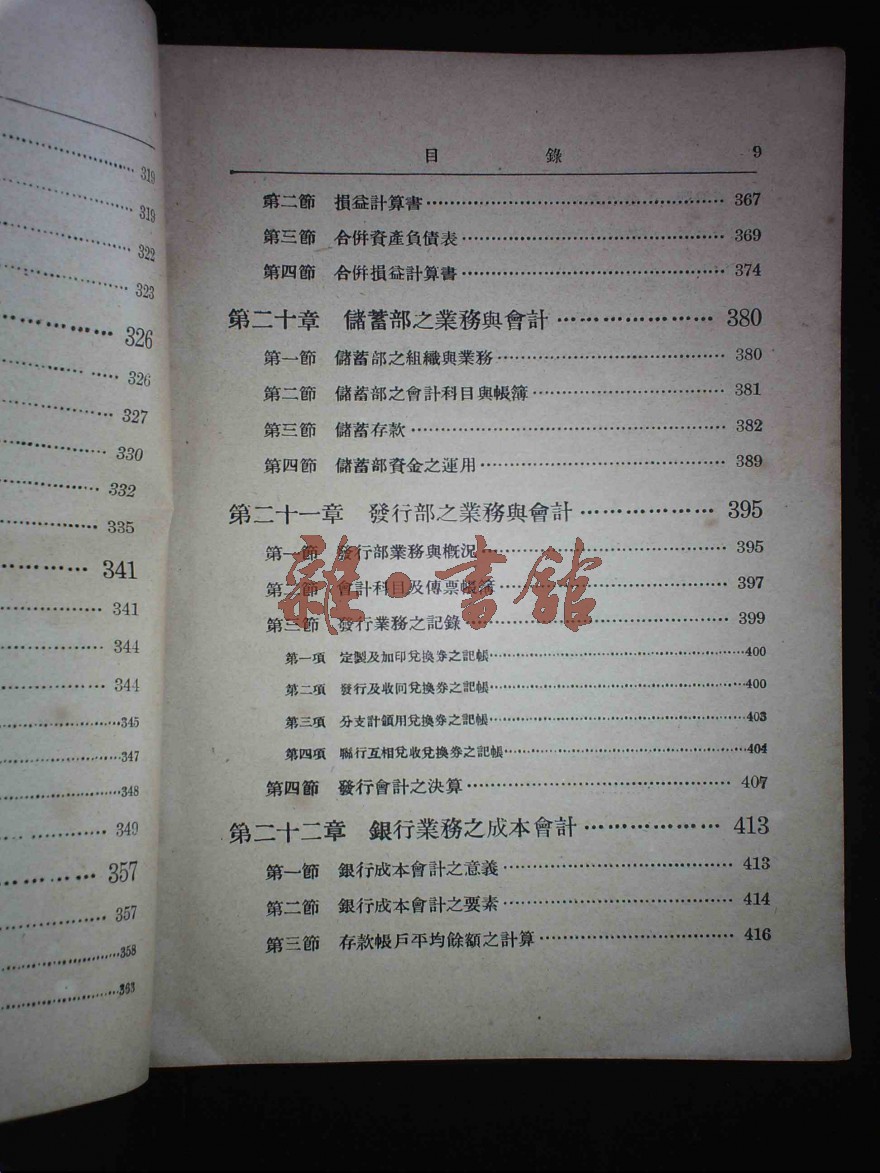 319
319
322
323
326
326
327
330
332
335
341
341
344
344
345
347
348
349
357
357
358
363
目 錄 9
第二節 損益計算書 367
第三節 合併資產負債表 369
第四節 合併損益計算書 374
第二十章 儲蓄部之業務與會計 380
第一節 儲蓄部之組織與業務 380
第二節 儲蓄部之會計科目與帳簿 381
第三節 儲蓄存款 382
第四節 儲蓄部資金之運用 389
第二十一章 發行部之業務與會計 395
第一節 發行部業務與概況 395
第二節 會計科目及傳票帳簿 397
第三節 發行業務之記錄 399
第一項 定製及加印兌換券之記帳 400
第二項 發行及收回兌換券之記帳 400
第三項 分支計領用兌換券之記帳 403
第四項 聯行互相兌收兌換券之記帳 404
第四節 發行會計之決算 407
第二十二章 銀行業務之成本會計 413
第一節 銀行成本會計之意義 413
第二節 銀行成本會計之要素 414
第三節 存款帳戶平均餘額之計算 416
雜·書館